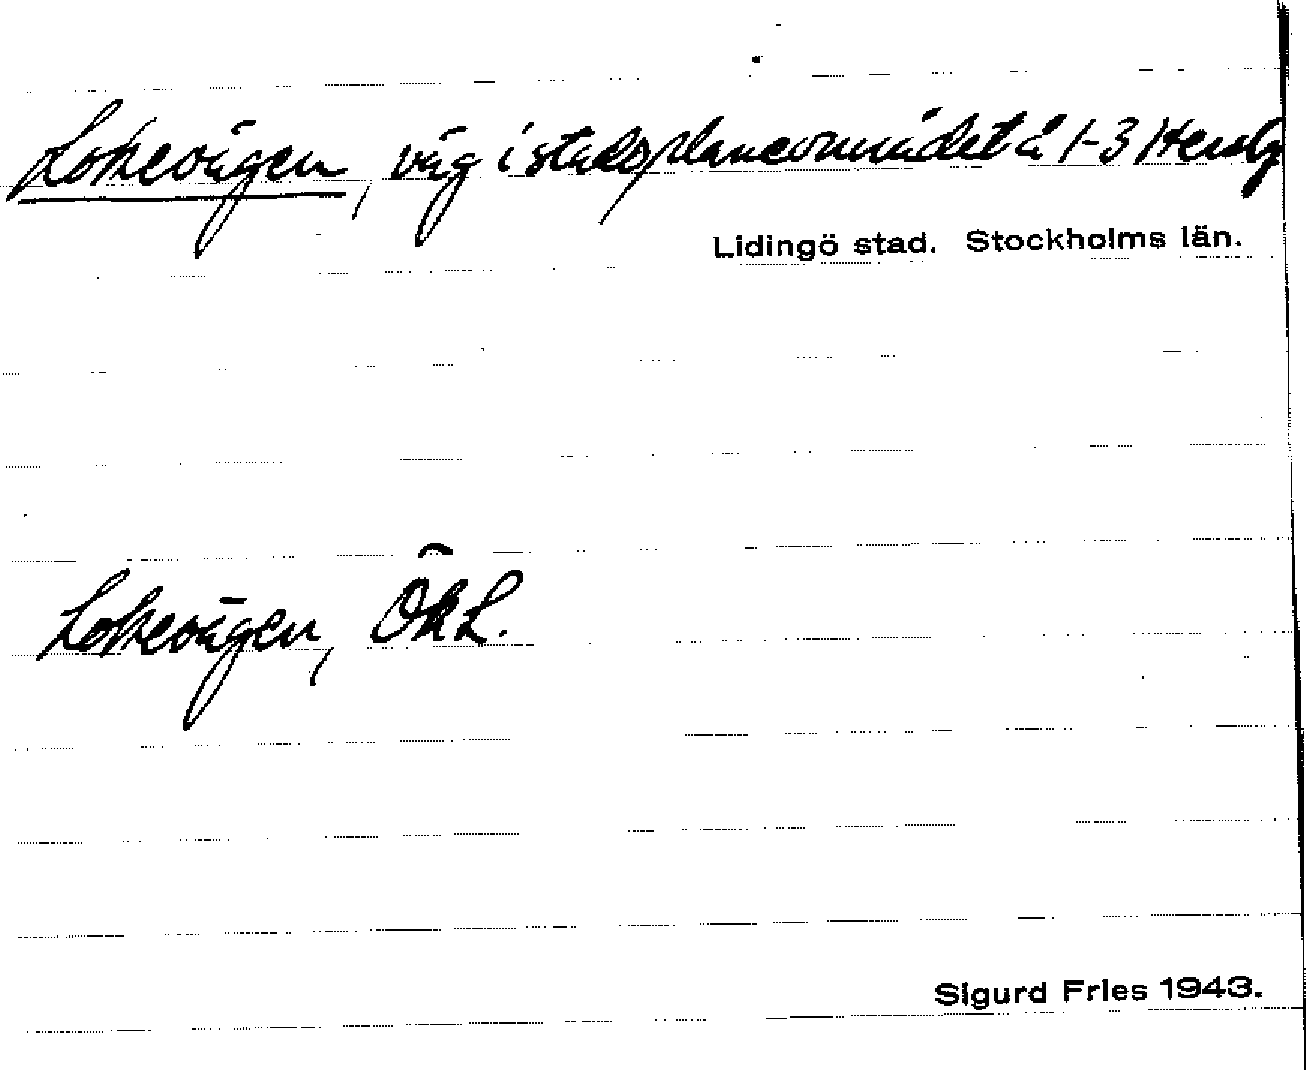 Lokevägen, väg i stadsplaneområdet å 1-3 Hersby
Lidingö stad. Stockholms län.
Lokevägen, ÖkL.
Sigurd Fries 1943.